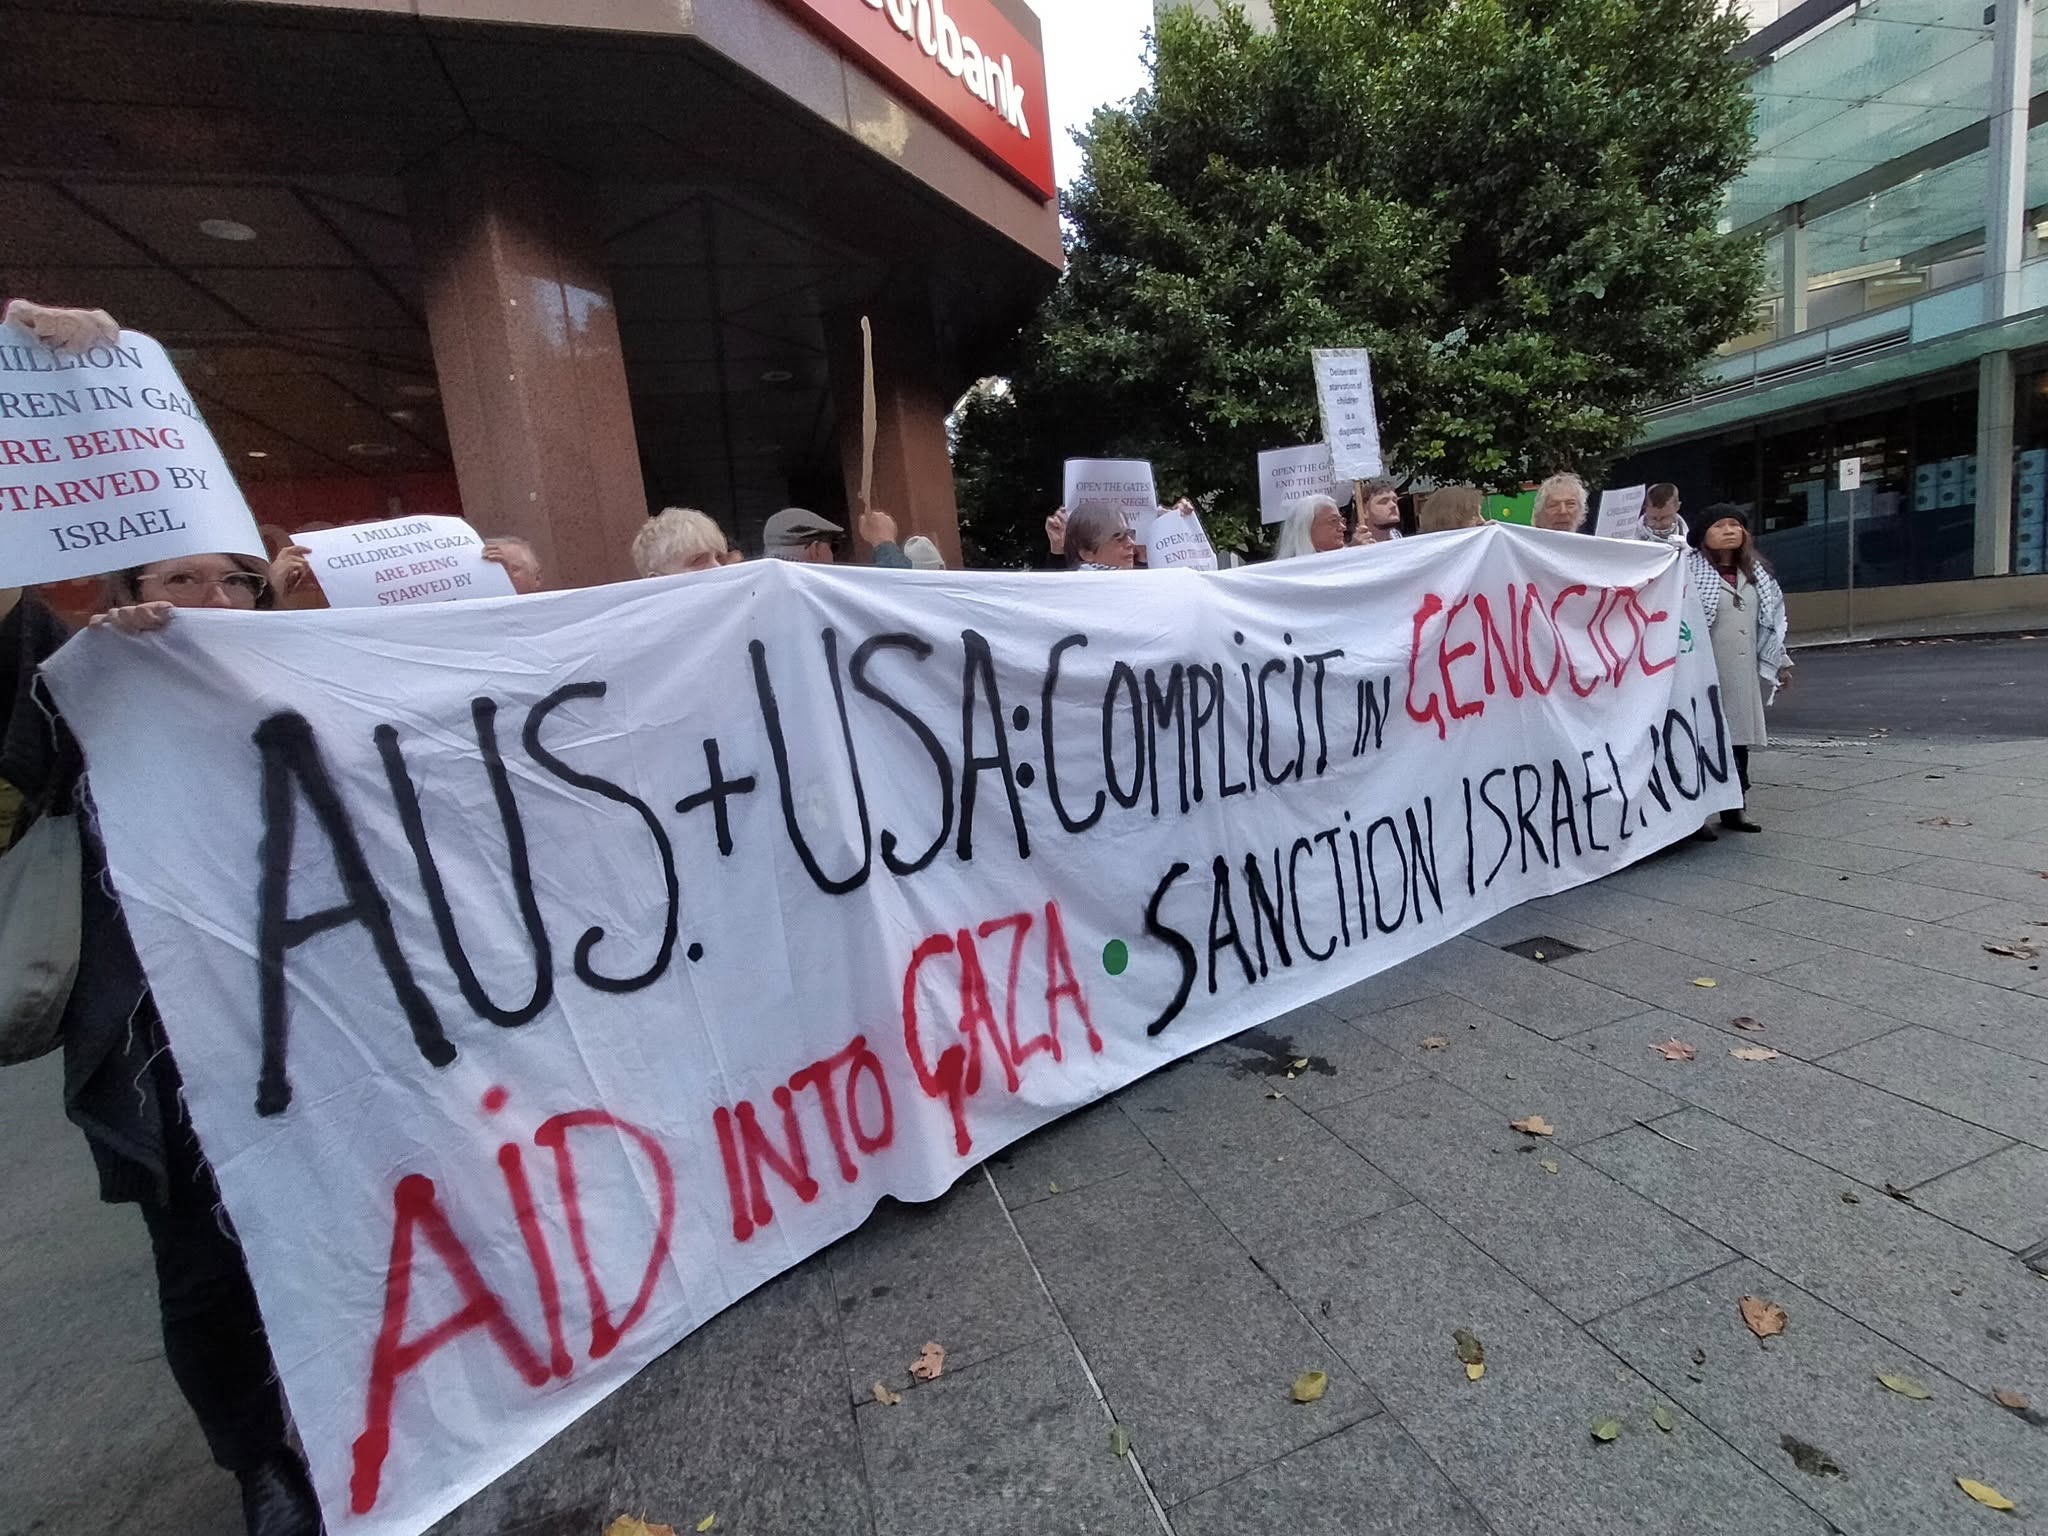 bank
MILLION
REN IN GAZA
ARE BEING
STARVED BY
ISRAEL
1 MILLION
CHILDREN IN GAZA
ARE BEING
STARVED BY
OPEN THE GATES
END THE SIEGE!
NOW!
OPEN
END THE
OPEN THE GA
END THE SIE
AID IN NOW!
Deliberate
starvation of
children
is a
disgusting
crime
1 MILLION
CHILDREN
ARE BEI
AUS.+USA:COMPLICIT IN GENOCIDE
AID INTO GAZA • SANCTION ISRAEL NOW